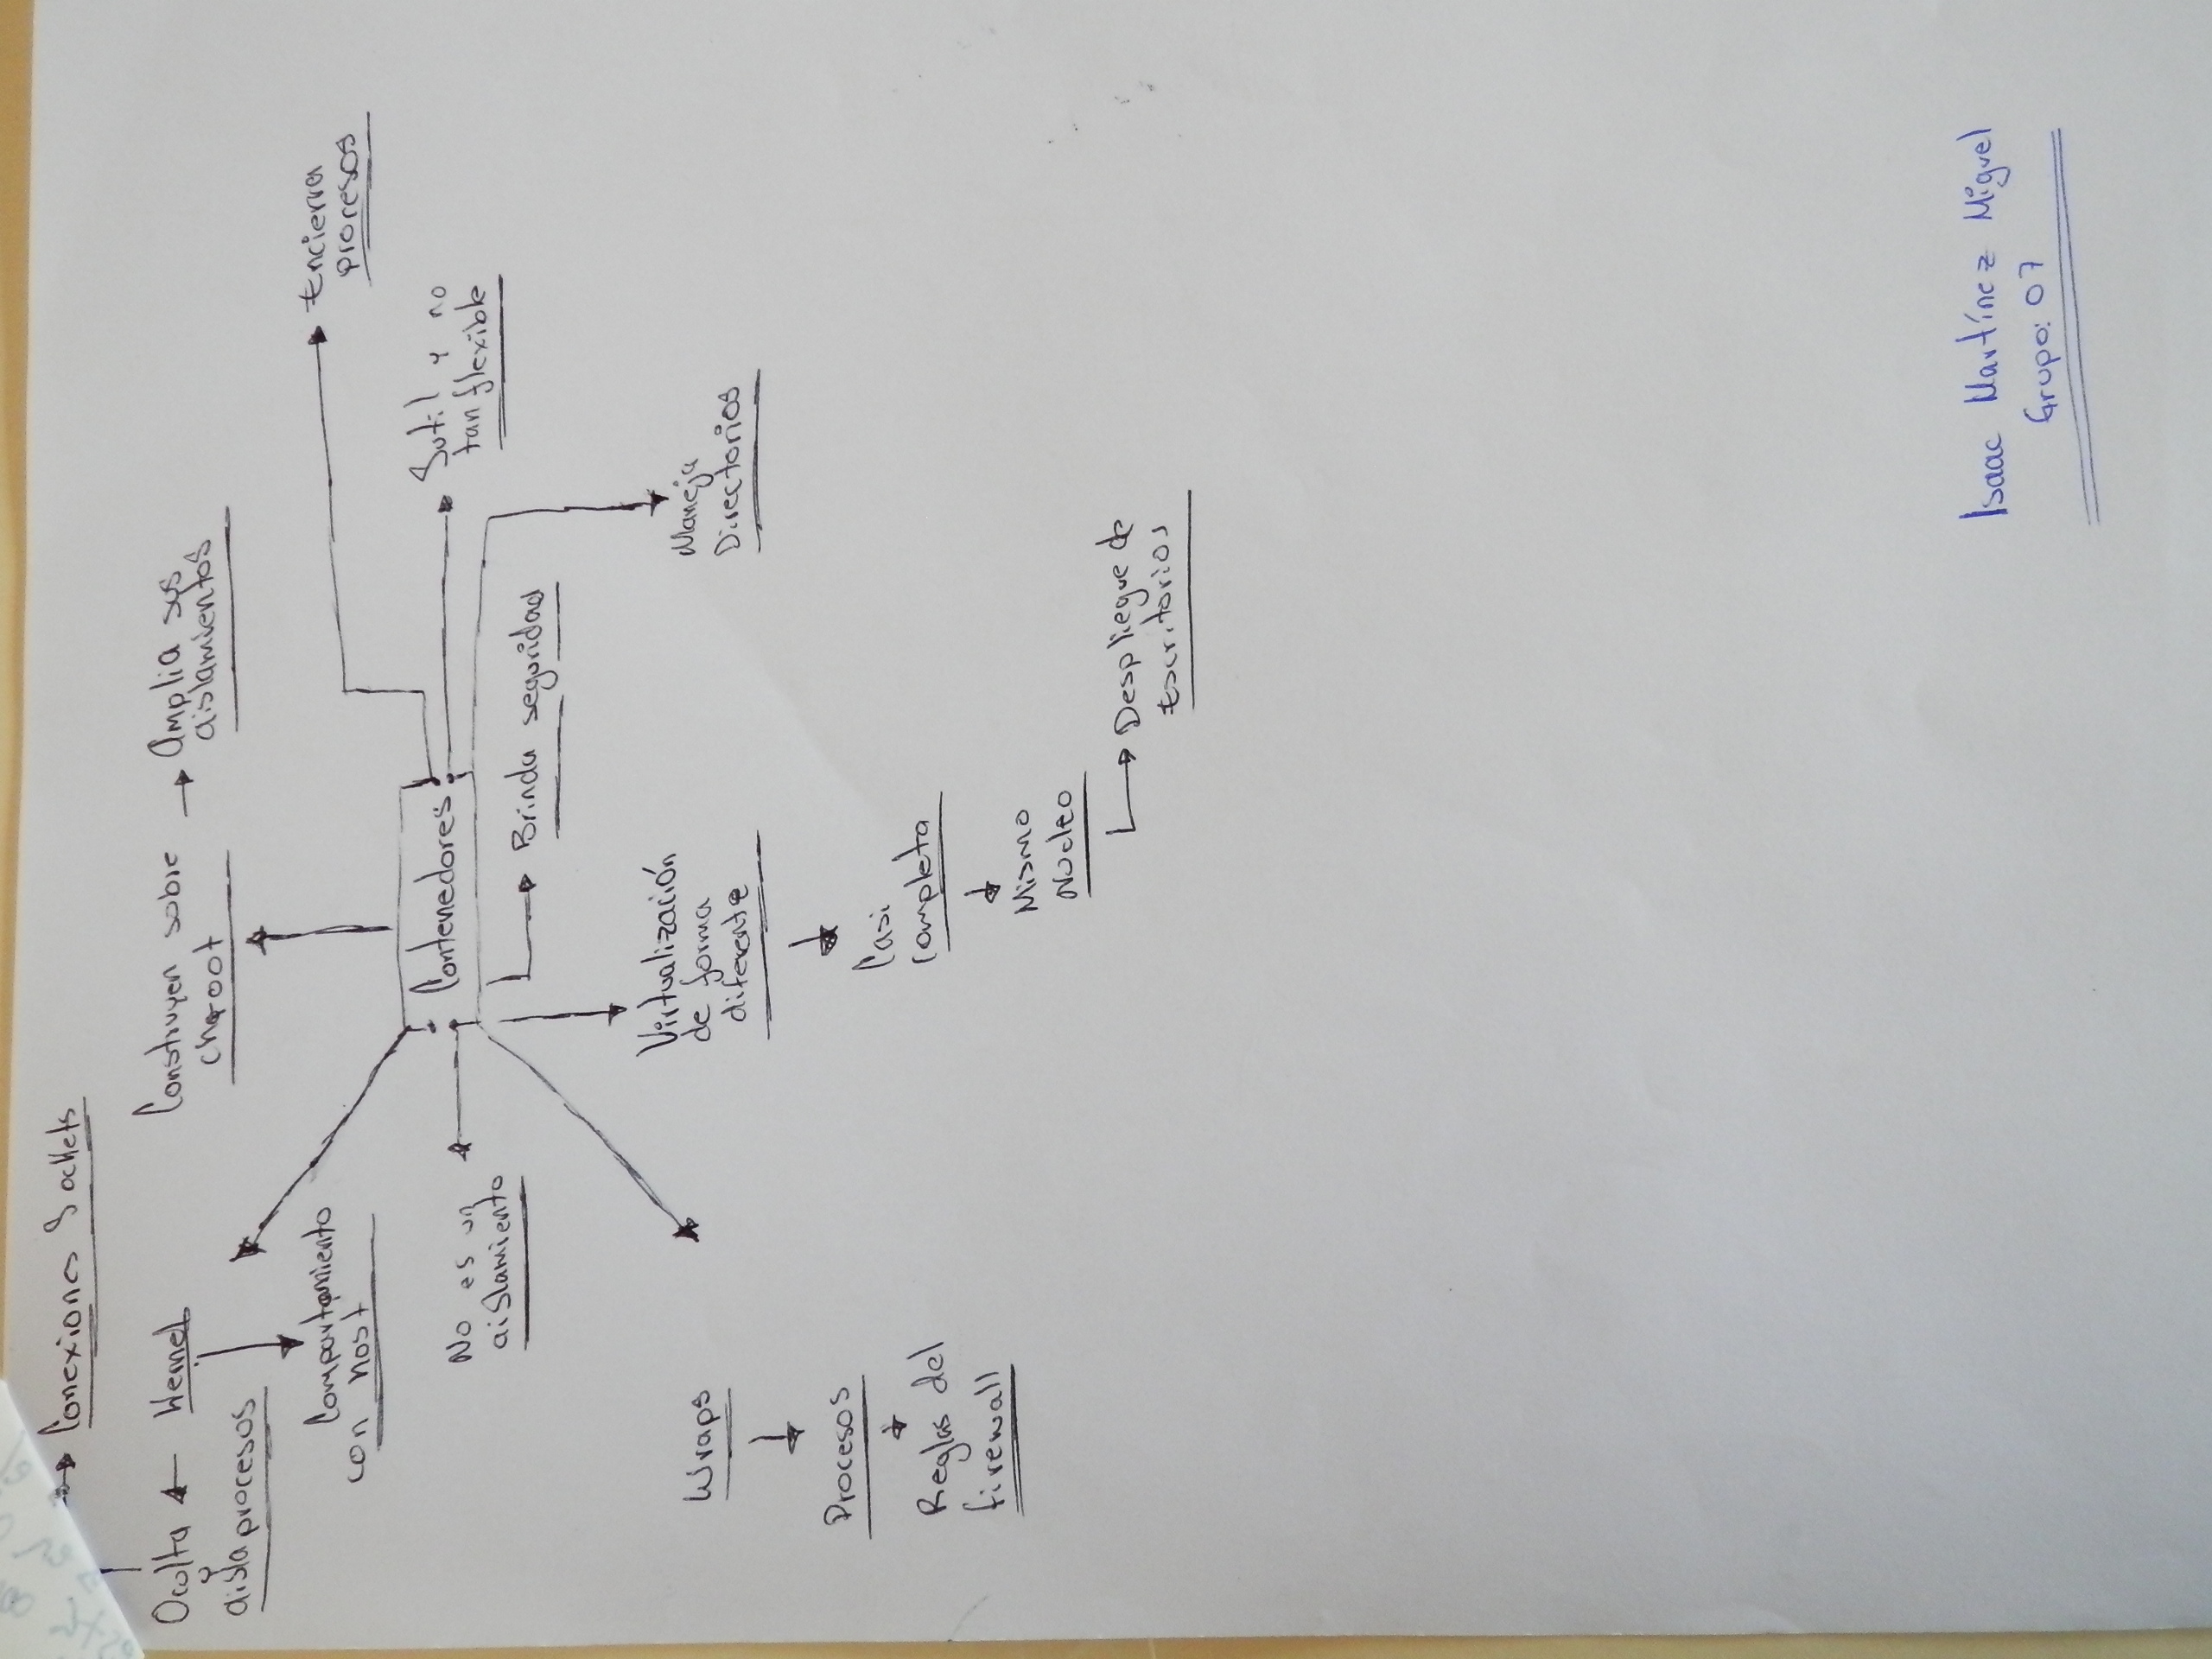 Conexiones Sockets
Oculta
y
aisla procesos
Kernel
Compartamiento
con host
Construyen sobre
chroot
Amplia sus
aislamientos
Encierra
procesos
Contenedores
No es un
aislamiento
Sutil y no
tan flexible
Brinda seguridad
Wraps
Procesos
Reglas del
firewall
Virtualización
de forma
diferente
Casi
completa
Mismo
Nucleo
Despliegue de
Escritorios
Maneja
Directorios
Isaac Martínez Miguel
Grupo: 07